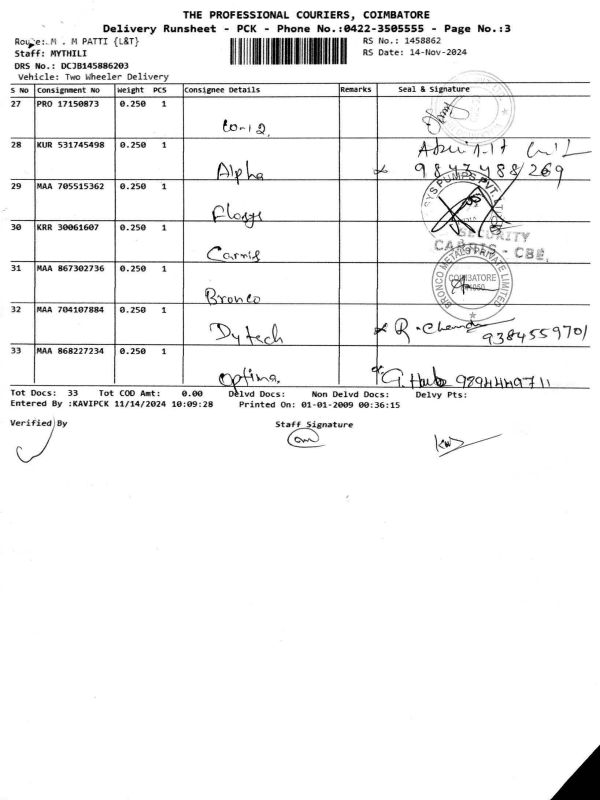 THE PROFESSIONAL COURIERS, COIMBATORE
Delivery Runsheet - PCK - Phone No.:0422-3505555 - Page No.:3
Route: M . M PATTI {L&T} RS No.: 1458862
Staff: MYTHILI RS Date: 14-Nov-2024
DRS No.: DCJB145886203
Vehicle: Two Wheeler Delivery
S No Consignment No Weight PCS Consignee Details Remarks Seal & Signature
27 PRO 17150873 0.250 1
28 KUR 531745498 0.250 1
Alpha 9847488269
29 MAA 705515362 0.250 1
SYS PUMPS PVT. LT
Flosys
30 KRR 30061607 0.250 1
SECURITY
Carris CARRIS - CBE.
31 MAA 867302736 0.250 1
BRONCO METALS PRIVATE LIMITED
COIMBATORE
Bronco
32 MAA 704107884 0.250 1
Dytech R. 9384559701
33 MAA 868227234 0.250 1
Optima. G. 9894449711
Tot Docs: 33 Tot COD Amt: 0.00 Delvd Docs: Non Delvd Docs: Delvy Pts:
Entered By :KAVIPCK 11/14/2024 10:09:28 Printed On: 01-01-2009 00:36:15
Verified By Staff Signature